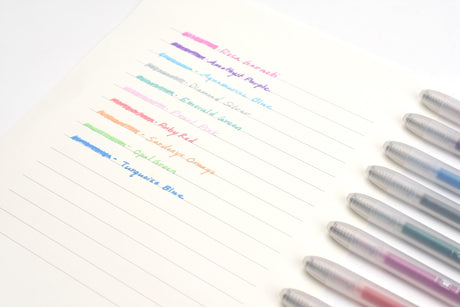 - Rose Garnet
- Amethyst Purple
- Aquamarine Blue
- Diamond Silver
- Emerald Green
- Pearl Pink
- Ruby Red
- Sardonyx Orange
- Opal Green
- Turquoise Blue